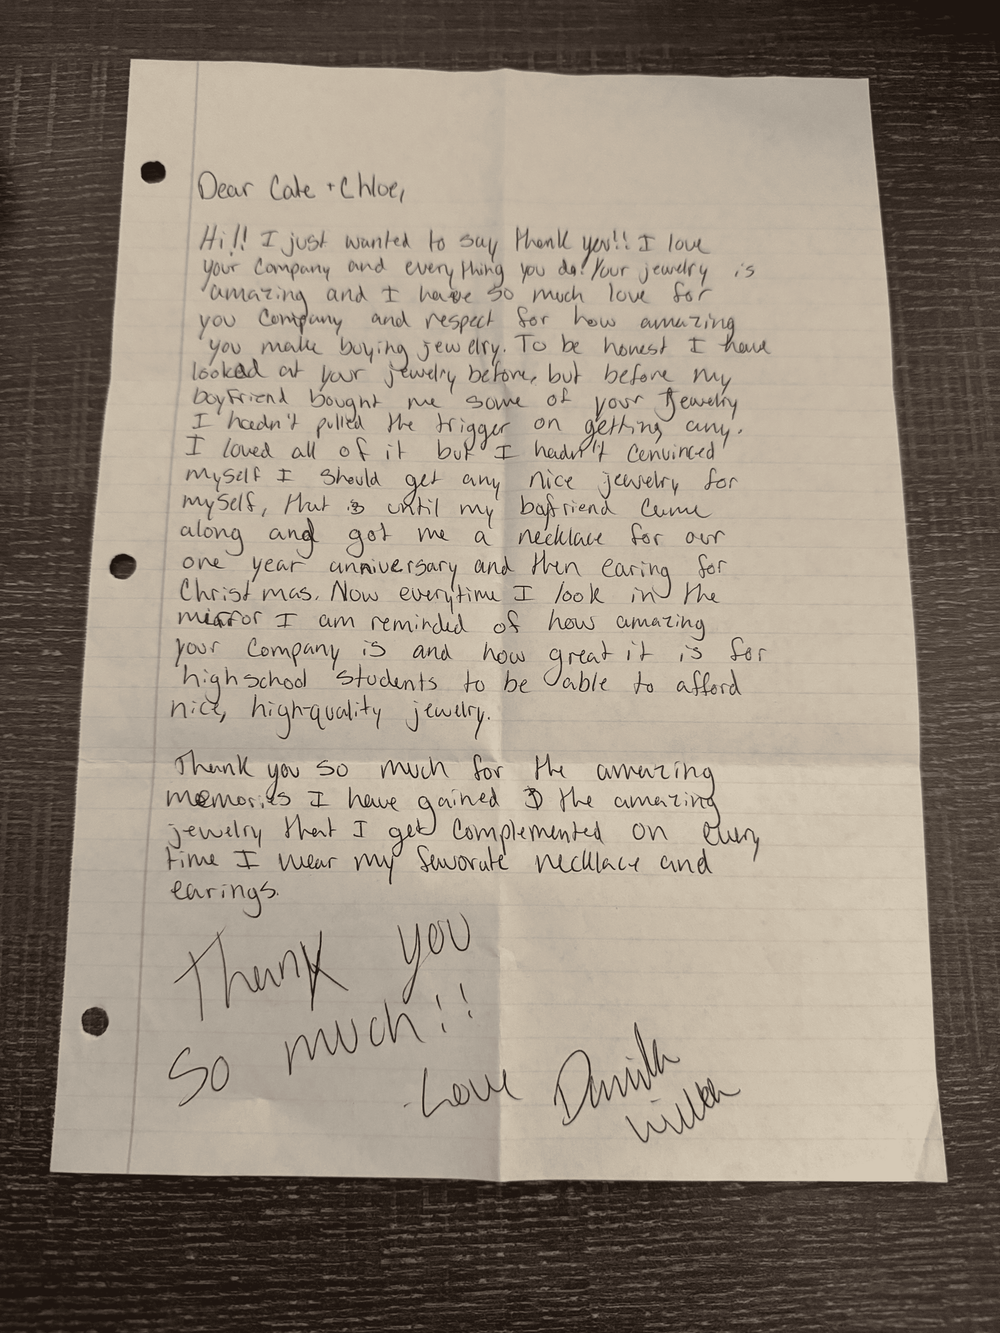 Dear Cate + Chloe,
Hi!! I just wanted to say thank you!! I love
your company and everything you do! Your jewelry is
amazing and I have so much love for
you company and respect for how amazing
you make buying jewelry. To be honest I have
looked at your jewelry before, but before my
boyfriend bought me some of your jewelry
I hadn't pulled the trigger on getting any.
I loved all of it but I hadn't convinced
myself I should get any nice jewelry for
myself, that is until my boyfriend came
along and got me a necklace for our
one year anniversary and then earing for
Christmas. Now everytime I look in the
mirror I am reminded of how amazing
your company is and how great it is for
highschool students to be able to afford
nice, high-quality jewelry.
Thank you so much for the amazing
memories I have gained & the amazing
jewelry that I get complemented on every
time I wear my favorate necklace and
earings.
Thank you
so much!!
-Love